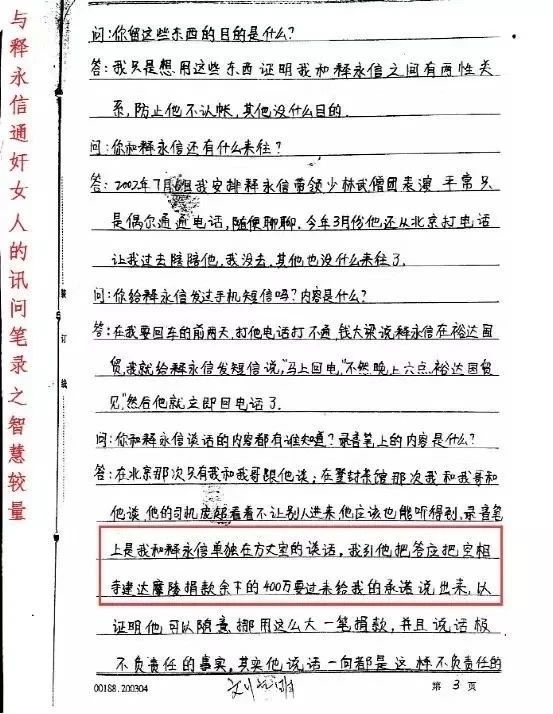 与释永信通奸女人的讯问笔录之智慧较量
问:你留这些东西的目的是什么?
答:我只是想用这些东西证明我和释永信之间有两性关
系,防止他不认帐,其他没什么目的.
问:你和释永信还有什么来往?
答:2002年7月 我安排释永信带领少林武僧团表演 平常只
是偶尔通通电话,随便聊聊.今年3月份他还从北京打电话
让我过去陪陪他,我没去.其他也没什么来往了.
问:你给释永信发过手机短信吗?内容是什么?
答:在我要回车的前两天,打他电话打不通,钱大梁说释永信在裕达国
贸,我就给释永信发短信说,"马上回电,"不然晚上六点.裕达国贸
见,"然后他就立即回电话了.
问:你和释永信谈话的内容都有谁知道?录音笔上的内容是什么?
答:在北京那次只有我和我哥跟他谈;在登封宾馆那次我和我哥和
他谈,他的司机 看着不让别人进来他应该也能听得到.录音笔
上是我和释永信单独在方丈室的谈话,我引他把答应把空相
寺建达摩陵捐款余下的400万要过来给我的承诺说出来,以
证明他可以随意挪用这么大一笔捐款,并且说话极
不负责任的事实,其实他说话一向都是这样不负责任的
装
订
线
00188.200304
第 3 页